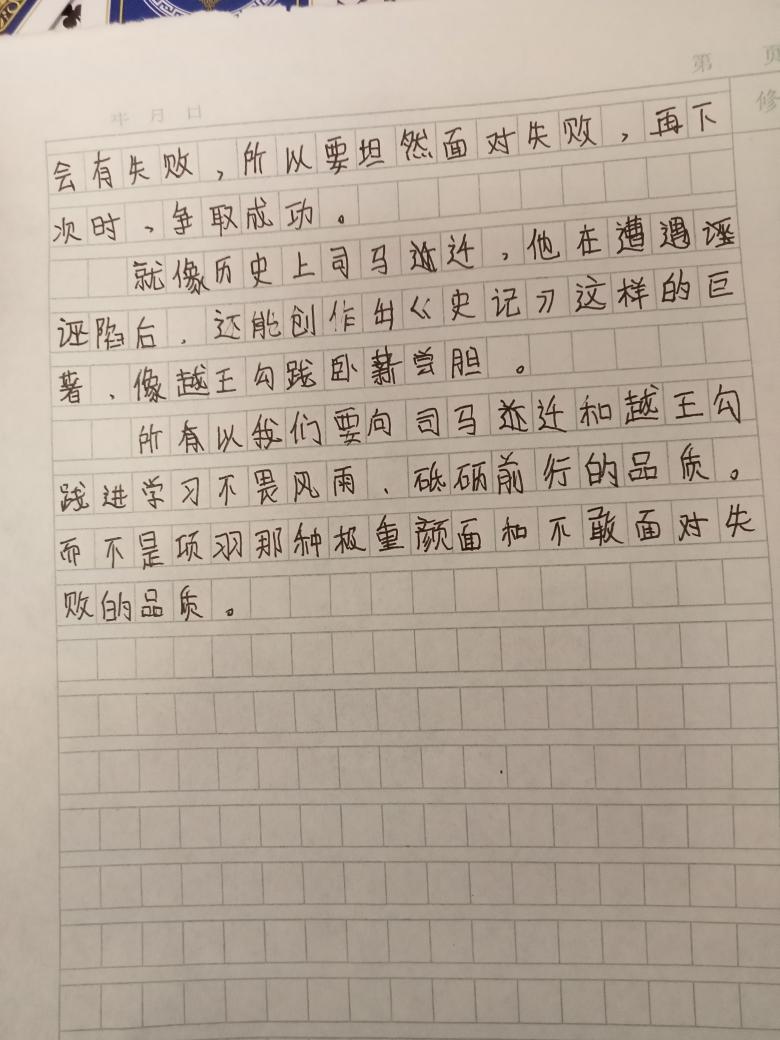 第 页
年 月 日
修
会有失败，所以要坦然面对失败，再下
次时、争取成功。
就像历史上司马迁，他在遭遇诬
诬陷后，还能创作出《史记》这样的巨
著、像越王勾践卧薪尝胆。
所有以我们要向司马迁和越王勾
践进学习不畏风雨、砥砺前行的品质。
而不是项羽那种极重颜面和不敢面对失
败的品质。